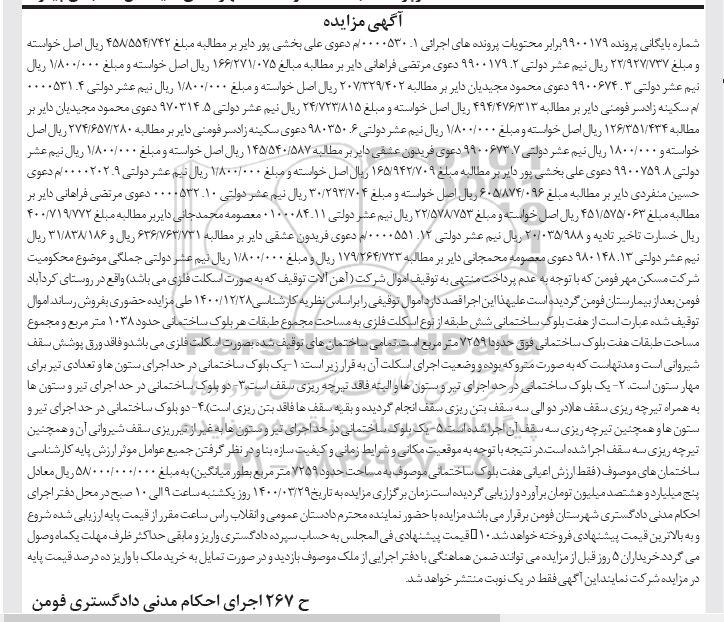 آگهی مزایده
شماره بایگانی پرونده ۹۹۰۰۱۷۹برابر محتویات پرونده های اجرائی ۱. ۰۰۰۰۵۳۰/م دعوی علی بخشی پور دایر بر مطالبه مبلغ ۴۵۸/۵۵۴/۷۴۲ ریال اصل خواسته
و مبلغ ۲۲/۹۲۷/۷۳۷ ریال نیم عشر دولتی ۲. ۹۹۰۰۱۷۹ دعوی مرتضی فراهانی دایر بر مطالبه مبالغ ۱۶۶/۲۷۱/۰۷۵ ریال اصل خواسته و مبلغ ۱/۸۰۰/۰۰۰ ریال
نیم عشر دولتی ۳. ۹۹۰۰۶۷۴ دعوی محمود مجیدیان دایر بر مطالبه ۲۰۷/۳۲۹/۴۰۲ ریال اصل خواسته و مبلغ ۱/۸۰۰/۰۰۰ ریال نیم عشر دولتی ۴. ۰۰۰۰۵۳۱
/م سکینه زادسر فومنی دایر بر مطالبه ۴۹۴/۴۷۶/۳۱۳ ریال اصل خواسته و مبلغ ۲۴/۷۲۳/۸۱۵ ریال نیم عشر دولتی ۵. ۹۷۰۳۱۴ دعوی محمود مجیدیان دایر بر
مطالبه ۱۲۶/۳۵۱/۴۳۴ ریال اصل خواسته و مبلغ ۱/۸۰۰/۰۰۰ ریال نیم عشر دولتی ۶. ۹۸۰۳۵۰ دعوی سکینه زادسر فومنی دایر بر مطالبه ۲۷۴/۶۵۷/۲۸۰ ریال اصل
خواسته و ۱۸۰۰/۰۰۰ ریال نیم عشر دولتی ۷. ۹۹۰۰۶۷۳ دعوی فریدون عشقی دایر بر مطالبه ۱۴۵/۵۴۰/۵۸۷ ریال اصل خواسته و مبلغ ۱/۸۰۰/۰۰۰ ریال نیم عشر
دولتی ۸. ۹۹۰۰۷۵۹ دعوی علی بخشی پور دایر بر مطالبه مبلغ ۱۶۵/۹۴۲/۷۰۹ ریال اصل خواسته و مبلغ ۱/۸۰۰/۰۰۰ ریال نیم عشر دولتی ۹. ۰۰۰۰۲۰۲/م دعوی
حسین منفردی دایر بر مطالبه مبلغ ۶۰۵/۸۷۴/۰۹۶ ریال اصل خواسته و مبلغ ۳۰/۲۹۳/۷۰۴ ریال نیم عشر دولتی ۱۰. ۰۰۰۰۵۳۲ دعوی مرتضی فراهانی دایر بر
مطالبه مبلغ ۴۵۱/۵۷۵/۰۶۳ ریال اصل خواسته و مبلغ ۲۲/۵۷۸/۷۵۳ ریال نیم عشر دولتی ۱۱. ۰۱۰۰۰۸۴ معصومه محمدجانی دایربر مطالبه مبلغ ۴۰۰/۷۱۹/۷۷۲
ریال خسارت تاخیر تادیه و ۲۰/۰۳۵/۹۸۸ ریال نیم عشر دولتی ۱۲. ۰۰۰۰۵۵۱/م دعوی فریدون عشقی دایر بر مطالبه ۶۳۶/۷۶۳/۷۳۱ ریال و ۳۱/۸۳۸/۱۸۶ ریال
نیم عشر دولتی ۱۳. ۹۸۰۱۴۸ دعوی معصومه محمجانی دایر بر مطالبه مبلغ ۱۷۹/۲۶۴/۷۲۳ ریال و مبلغ ۱/۸۰۰/۰۰۰ ریال نیم عشر دولتی جملگی موضوع محکومیت
شرکت مسکن مهر فومن که با توجه به عدم پرداخت منتهی به توقیف اموال شرکت ( آهن آلات توقیف که به صورت اسکلت فلزی می باشد) واقع در روستای کردآباد
فومن بعد از بیمارستان فومن گردیده است علیهذا این اجرا قصد دارد اموال توقیفی را براساس نظریه کارشناسی۱۴۰۰/۱۲/۲۸ طی مزایده حضوری بفروش رساند اموال
توقیف شده عبارت است از هفت بلوک ساختمانی شش طبقه از نوع اسکلت فلزی به مساحت مجموع طبقات هر بلوک ساختمانی حدود ۱۰۳۸ متر مربع و مجموع
مساحت طبقات هفت بلوک ساختمانی فوق حدودا ۷۲۵۹ متر مربع است.تمامی ساختمان های توقیف شده بصورت اسکلت فلزی می باشدو فاقد ورق پوشش سقف
شیروانی است و مدتهاست که به صورت متروکه بوده و وضعیت اجرای اسکلت آن به قرار زیر است: ۱-یک بلوک ساختمانی در حد اجرای ستون ها و تعدادی تیر برای
مهار ستون است. ۲- یک بلوک ساختمانی در حد اجرای تیر و ستون ها و البته فاقد تیرچه ریزی سقف است.۳- دو بلوک ساختمانی در حد اجرای تیر و ستون ها
به همراه تیرچه ریزی سقف هلادر دو الی سه سقف بتن ریزی سقف انجام گردیده و بقیه سقف ها فاقد بتن ریزی است).۴- دو بلوک ساختمانی در حد اجرای تیر و
ستون ها و همچنین تیرچه ریزی سه سقف آن اجرا شده است.۵- یک بلوک ساختمانی در حد اجرای تیر و ستون ها به غیر از تیرریزی سقف شیروانی آن و همچنین
تیرچه ریزی سه سقف اجرا شده است.در نتیجه با توجه به موقعیت مکانی و شرایط زمانی و کیفیت سازه بنا و در نظر گرفتن جمیع عوامل موثر ارزش پایه کارشناسی
ساختمان های موصوف ( فقط ارزش اعیانی هفت بلوک ساختمانی موصوف به مساحت حدود ۷۲۵۹ متر مربع بطور میانگین) به مبلغ ۵۸/۰۰۰/۰۰۰/۰۰۰ ریال معادل
پنج میلیارد و هشتصد میلیون تومان برآورد و ارزیابی گردیده است.زمان برگزاری مزایده به تاریخ ۱۴۰۰/۰۳/۲۹ روز یکشنبه ساعت ۹ الی ۱۰ صبح در محل دفتر اجرای
احکام مدنی دادگستری شهرستان فومن برقرار می باشد مزایده با حضور نماینده محترم دادستان عمومی و انقلاب راس ساعت مقرر از قیمت پایه ارزیابی شده شروع
و به بالاترین قیمت پیشنهادی فروخته خواهد شد.۱۰ قیمت پیشنهادی فی المجلس به حساب سپرده دادگستری واریز و مابقی حداکثر ظرف مهلت یکماه وصول
می گردد.خریداران ۵ روز قبل از مزایده می توانند ضمن هماهنگی با دفتر اجرایی از ملک موصوف بازدید و در صورت تمایل به خرید ملک با واریز ده درصد قیمت پایه
در مزایده شرکت نمایند.این آگهی فقط در یک نوبت منتشر خواهد شد.
ح ۲۶۷ اجرای احکام مدنی دادگستری فومن